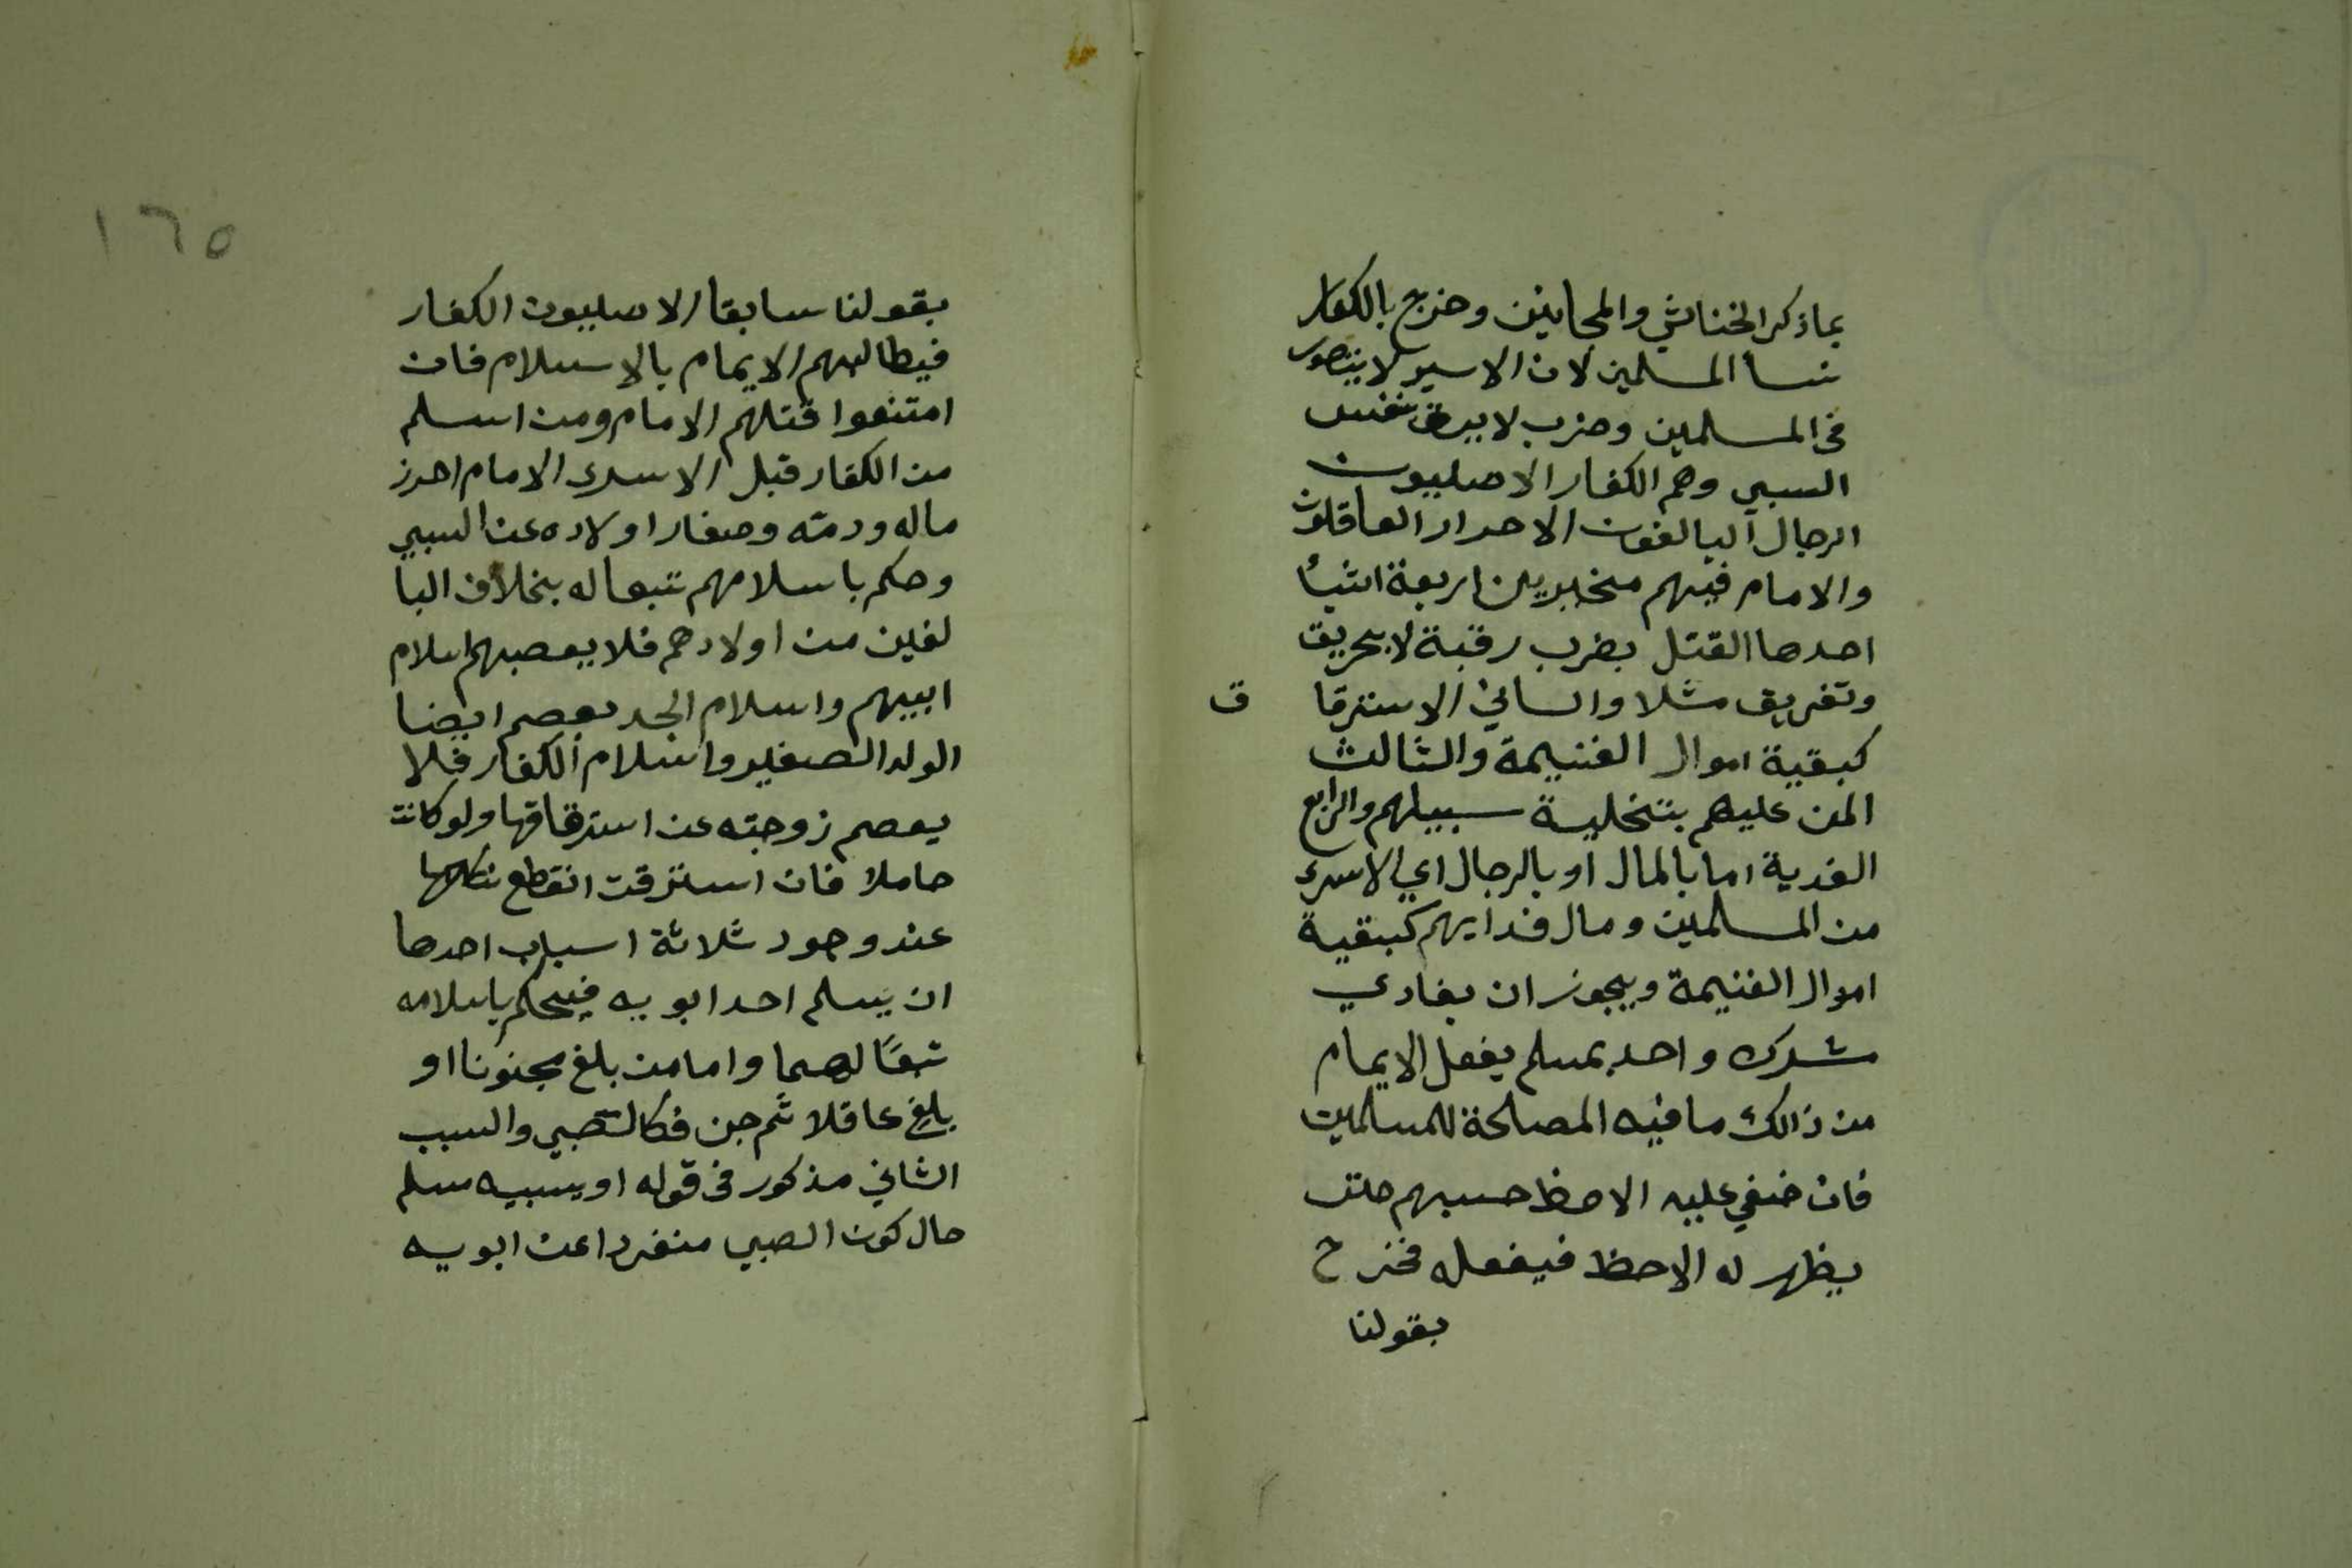 بماذكر الخناثي والمجانين وخرج بالكفار
نسا المسلمين لان الاسير لا يتصور
فى المسلمين وضرب لا يرق بنفس
السبي وهم الكفار الاصليون
الرجال البالغون الاحرار العاقلون
والامام فيهم مخير بين اربعة اشيأ
احدها القتل بضرب رقبة لا بحريق
وتغريق مثلا والثاني الاسترقا ق
كبقية اموال الغنيمة والثالث
المن عليهم بتخلية سبيلهم والرابع
الفدية اما بالمال او بالرجال اي الاسرى
من المسلمين ومال فدايهم كبقية
اموال الغنيمة ويجوز ان يفادي
مشرك واحد بمسلم يفعل الايمام
من ذالك مافيه المصلحة للمسلمين
فان خفي عليه الاحظ حسبهم حتى
يظهر له الاحظ فيفعله فخرج
بقولنا
١٦٥
بقولنا سابقا الاصليون الكفار
فيطالبهم الايمام بالاسلام فان
امتنعوا قتلهم الامام ومن اسلم
من الكفار قبل الاسرى الامام احرز
ماله ودمه وصغار اولاده عن السبي
وحكم باسلامهم تبعا له بخلاف البا
لغين من اولادهم فلا يعصمهم اسلام
ابيهم واسلام الجد يعصم ايضا
الولد الصغير واسلام الكفار فلا
يعصم زوجته عن استرقاقها ولو كانت
حاملا فان استرقت انقطع نكاحها
عند وجود ثلاثة اسباب احدها
ان يسلم احد ابويه فيحكم باسلامه
تبعًا لهما واما من بلغ مجنونا او
بلغ عاقلا ثم جن فكالصبي والسبب
الثاني مذكور فى قوله او يسبيه مسلم
حال كون الصبي منفردا عن ابويه